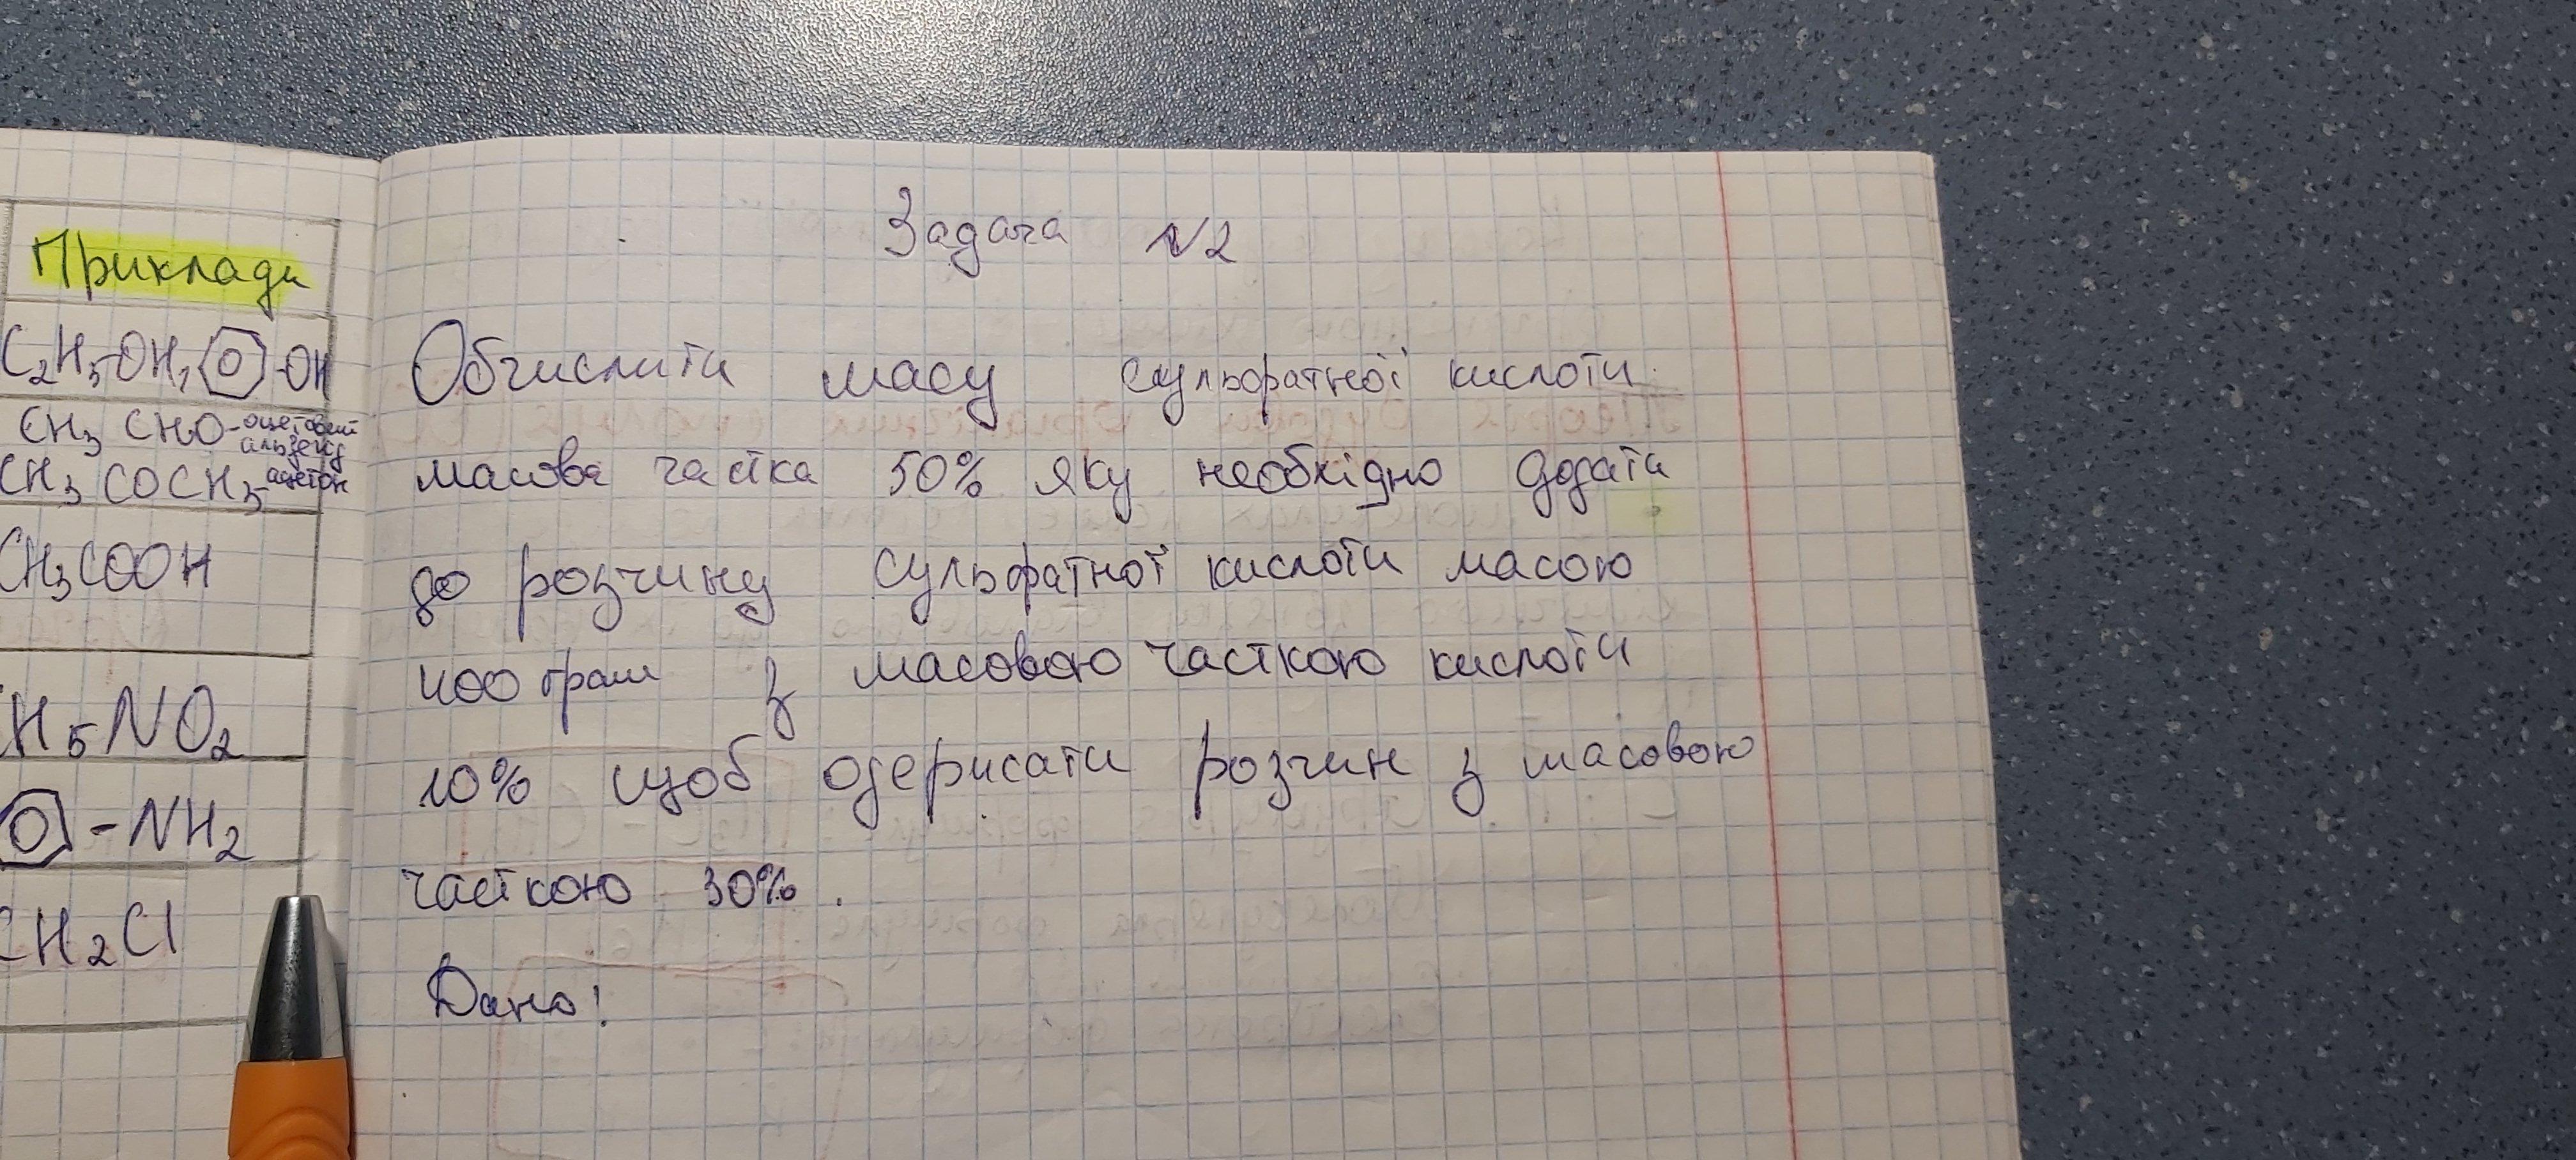 Приклади
C2H5OH, -OH
CH3 CHO - оцетовий
альдегід
CH3 COCH3 ацетон
CH3COOH
H5NO2
-NH2
CH2Cl
Задача N2
Обчислити масу сульфатної кислоти
масова частка 50% яку необхідно додати
до розчину сульфатної кислоти масою
400 грам з масовою часткою кислоти
10% щоб одержати розчин з масовою
часткою 30%.
Дано: